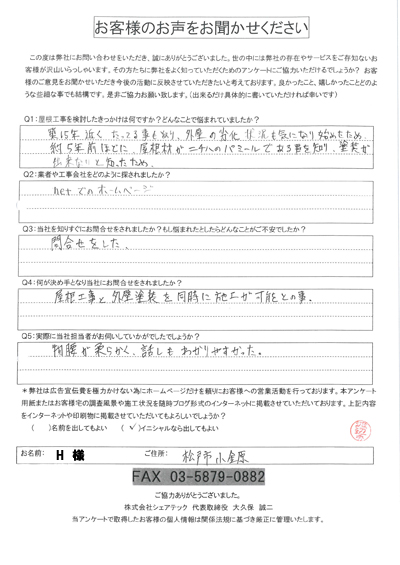 お客様のお声をお聞かせください
この度は弊社にお問い合わせをいただき、誠にありがとうございました。世の中には弊社の存在やサービスをご存知ないお
客様が沢山いらっしゃいます。その方たちに弊社をよく知っていただくためのアンケートにご協力いただけるでしょうか？ お客
様のご意見をお聞かせいただき今後の活動に反映させていただきたいと考えております。良かったこと、嬉しかったことどのよ
うな些細な事でも結構です。是非ご協力お願い致します。（出来るだけ具体的に書いていただければ幸いです）
Q1：屋根工事を検討したきっかけは何ですか？どんなことで悩まれていましたか？
築15年近くたってる事もあり、外壁の劣化状況も気になり始めたため
約5年前ほどに、屋根材がニチハのパミールである事を知り、塗装が
出来ないと知ったため
Q2：業者や工事会社をどのように探されましたか？
netでのホームページ
Q3：当社を知りすぐにお問合せをされましたか？もし悩まれたとしたらどんなことがご不安でしたか？
問合せをした、
Q4：何が決め手となり当社にお問合せをされましたか？
屋根工事と外壁塗装を同時に施工が可能との事。
Q5：実際に当社担当者がお伺いしていかがでしたでしょうか？
物腰が柔らかく、話しもわかりやすかった。
＊弊社は広告宣伝費を極力かけない為にホームページだけを頼りにお客様への営業活動を行っております。本アンケート
用紙またはお客様宅の調査風景や施工状況を随時ブログ形式のインターネットに掲載させていただいております。上記内容
をインターネットや印刷物に掲載させていただいてもよろしいでしょうか？
（　）名前を出してもよい （✓）イニシャルなら出してもよい
お名前： H 様 ご住所： 松戸市小金原
FAX 03-5879-0882
ご協力ありがとうございました。
株式会社シェアテック 代表取締役 大久保 誠二
当アンケートで取得したお客様の個人情報は関係法規に基づき厳正に管理いたします。